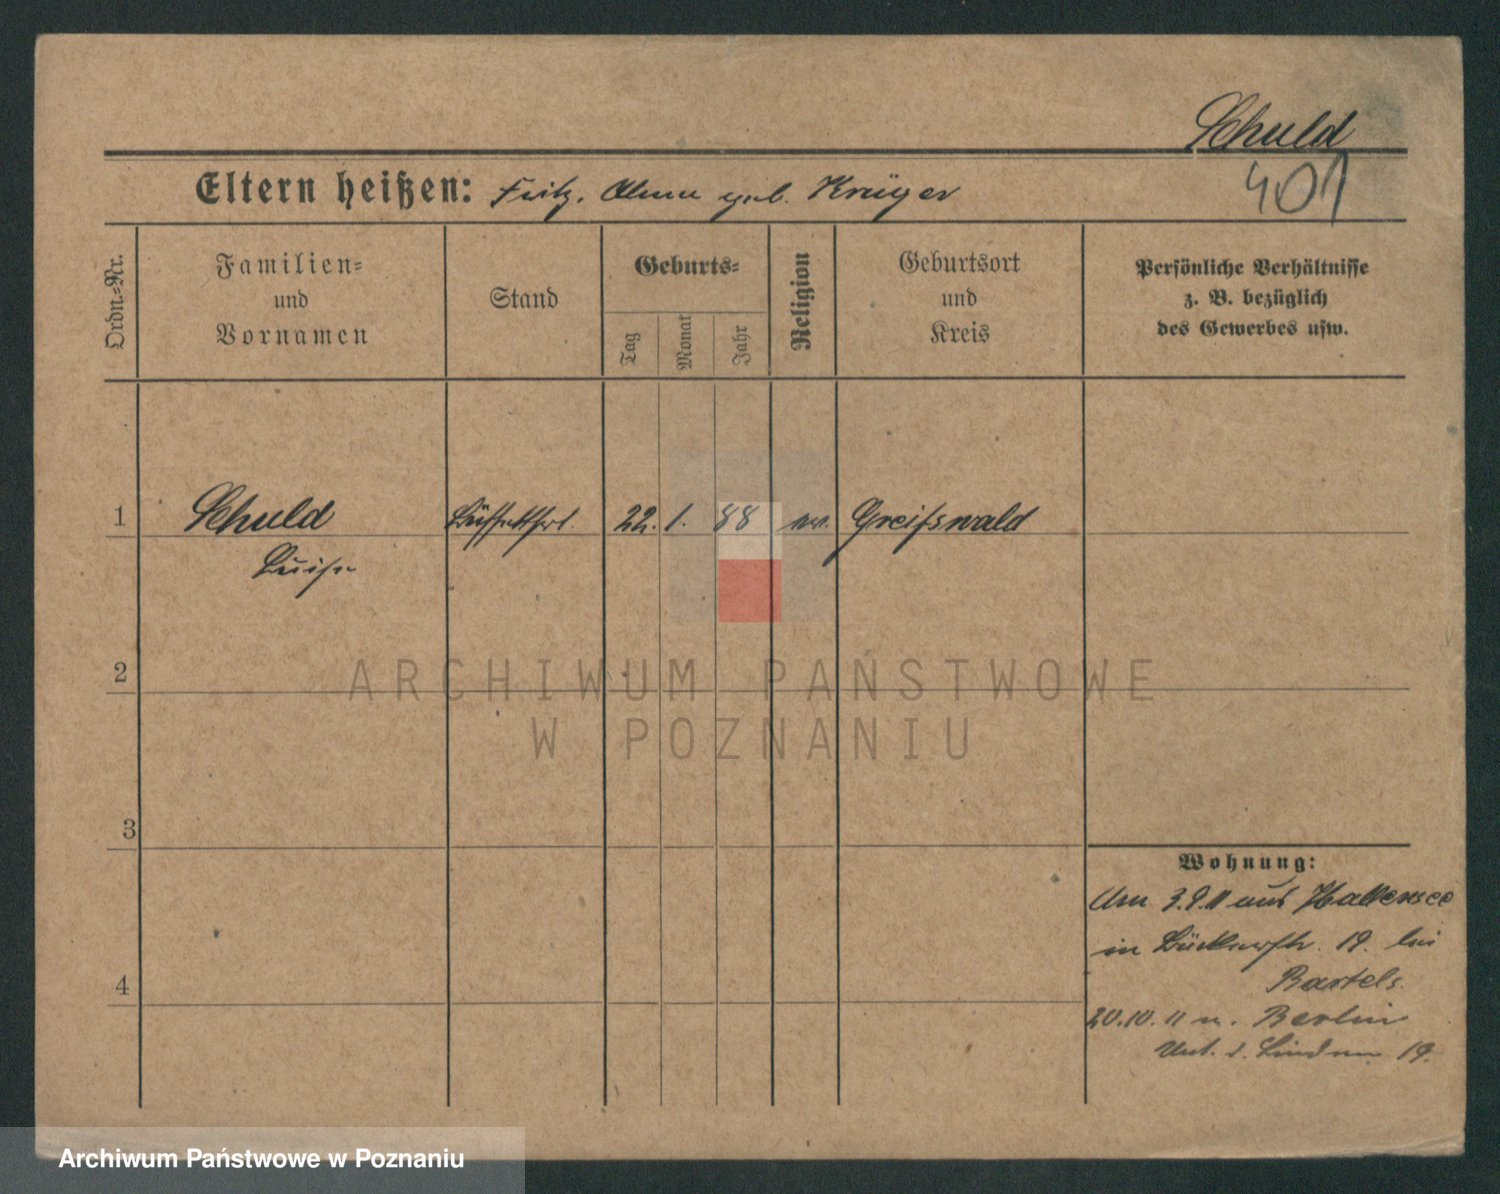 Schuld
401
Eltern heißen: Fritz, Alma geb. Krüger
Ordn.-Nr.
Familien-
und
Vornamen
Stand
Geburts-
Tag
Monat
Jahr
Religion
Geburtsort
und
Kreis
Persönliche Verhältnisse
z. B. bezüglich
des Gewerbes usw.
1 Schuld Büffettfrl. 22. 1. 88 ev. Greifswald
Luise
2
ARCHIWUM PAŃSTWOWE
W POZNANIU
3
4
Wohnung:
Am 3.9.11 aus Halensee
in 19. bei
Bartels.
20.10.11 n. Berlin
Unt. d. Linden 19.
Archiwum Państwowe w Poznaniu